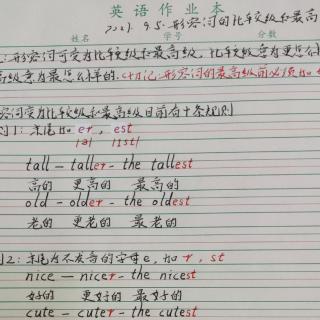 英语作业本
姓名 学号 分数
2021. 9.5. 形容词的比较级和最高
:形容词可变为比较级和最高级, 比较级意为更怎么
高级意为最怎么样的. 切记:形容词的最高级前必须加
容词变为比较级和最高级目前有十条规则
则1: 末尾加 er , est
|ə| |ɪst|
tall – taller – the tallest
高的 更高的 最高的
old – older – the oldest
老的 更老的 最老的
则2: 末尾为不发音的字母e, 加 r , st
nice – nicer – the nicest
好的 更好的 最好的
cute – cuter – the cutest